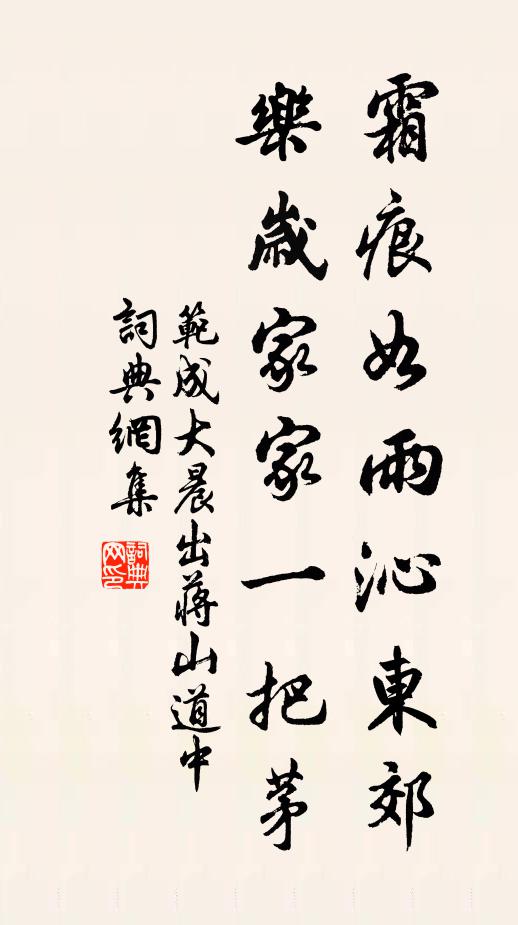 霜痕如雨沁東郊
樂歲家家一把茅
範成大晨出蔣山道中
詞典網集
詞典网印